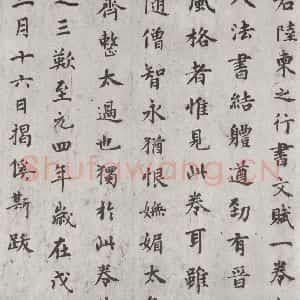 右陸柬之行書文賦一卷
人法書結軆遒勁有晉
風格者惟見此卷耳雖
隨僧智永猶恨嫵媚太
齊整太過也獨於此卷
之三歎至元四年歲在戊
二月十六日揭傒斯跋
Shufawang.CN